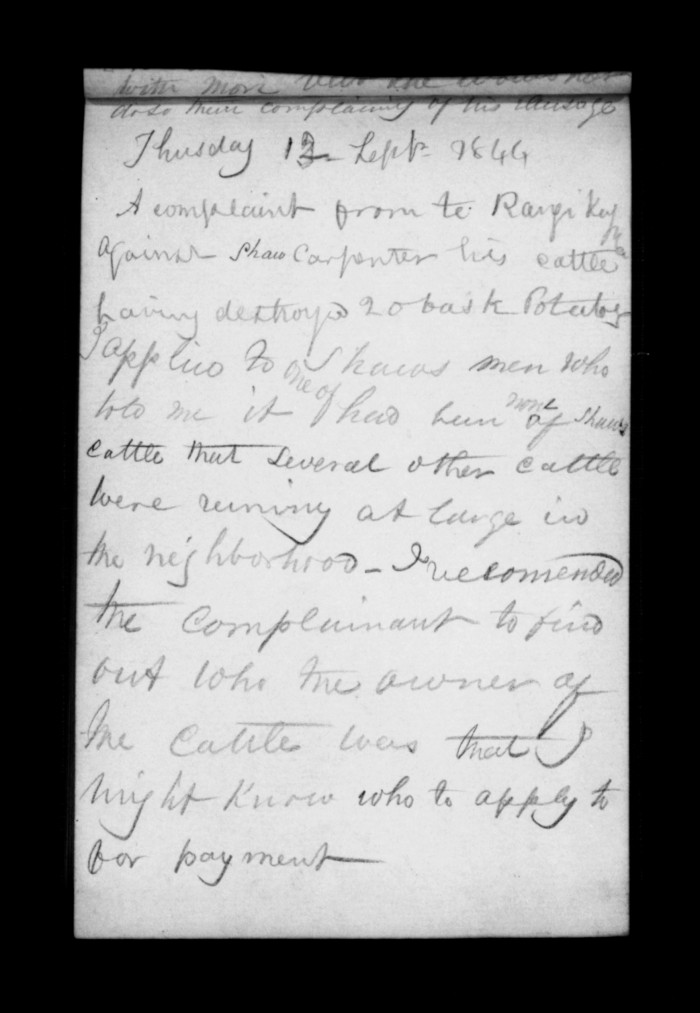 with more
do so them complaining of his usage
Thusday 12 Septr 1844
A complaint from te Rangi
Against Shaw Carpenter his cattle
having destroyd 20 bask Potatoes
I applied to one of Shaws men who
told me it had been none of Shaws
cattle that several other cattle
were runing at large in
the neighborhood - I recomended
the complainant to find
out who the owner of
the cattle was that I
might know who to apply to
for payment